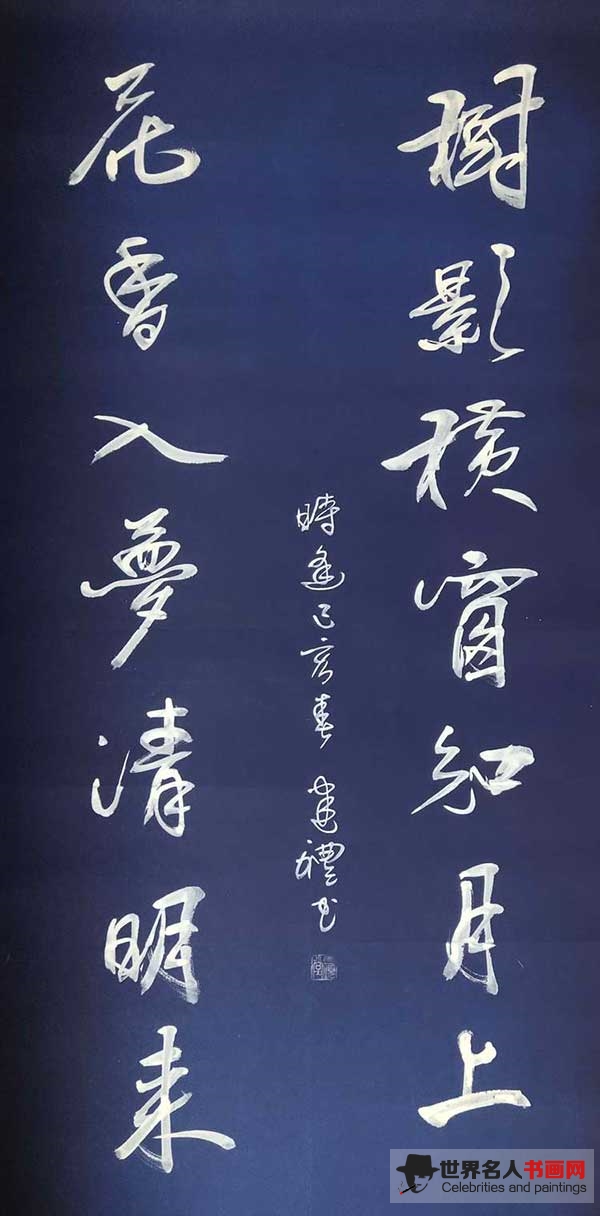 樹影橫窗知月上
花香入夢清明来
時逢己亥春 建禮书
世界名人书画网
Celebrities and paintings